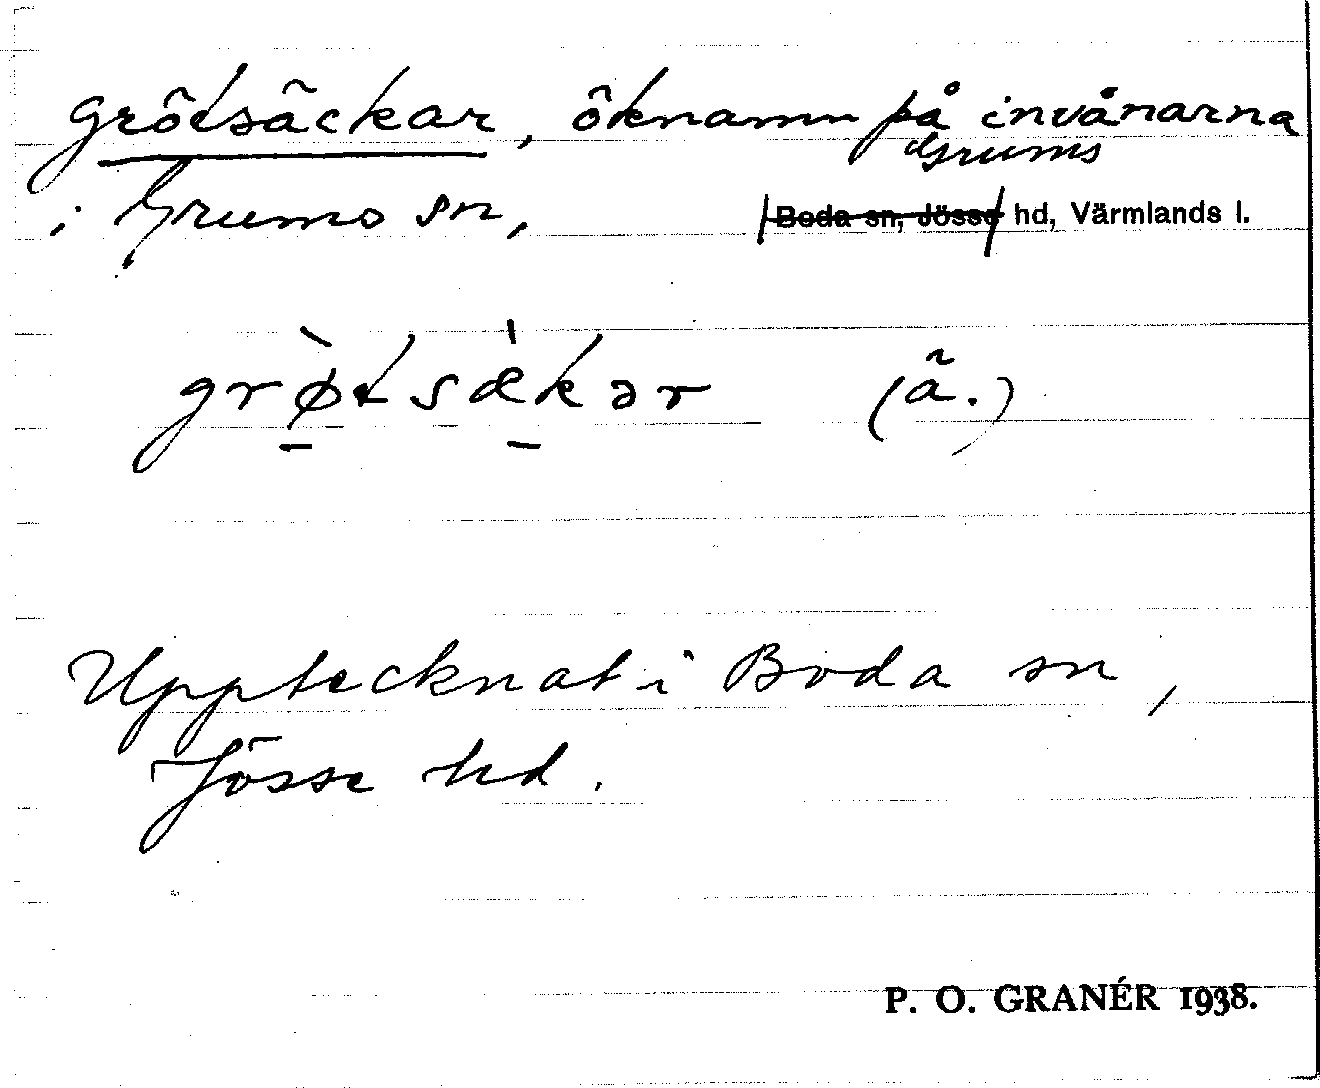 grötsäckar, öknamn på invånarna
Grums
i Grums sn, Boda sn, Jösse hd, Värmlands l.
grø̀tsæ̍kər (ä.)
Upptecknat i Boda sn,
Jösse hd.
P. O. GRANÉR 1938.